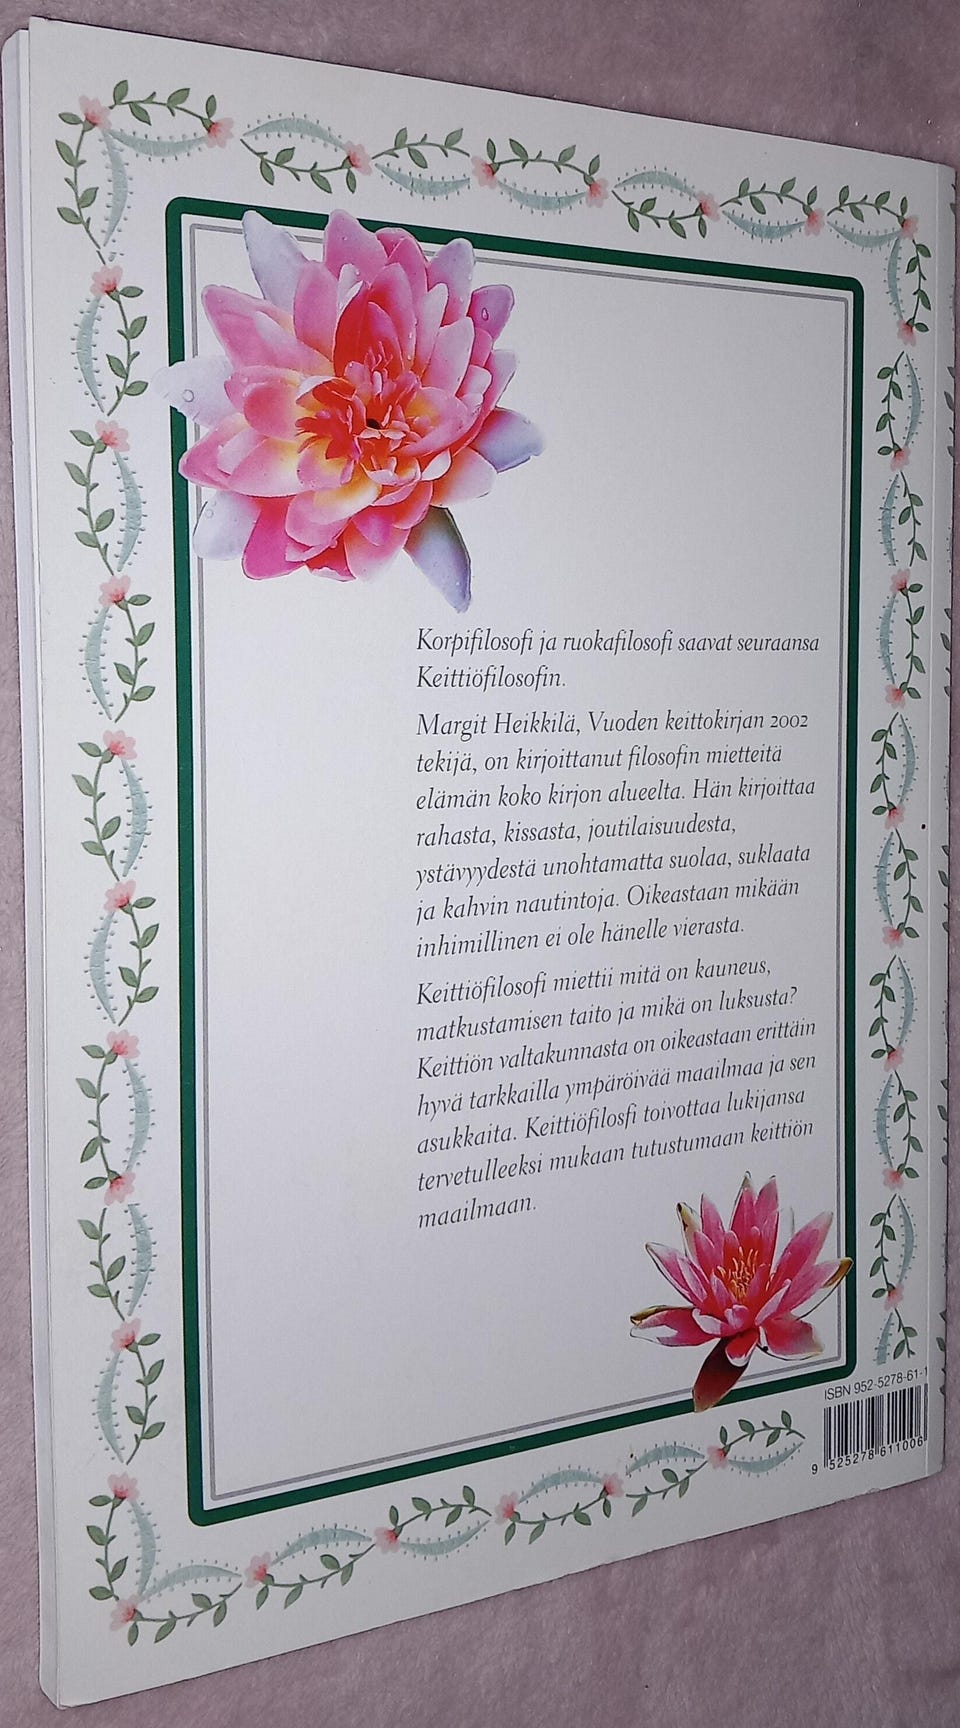 Korpifilosofi ja ruokafilosofi saavat seuraansa
Keittiöfilosofin.
Margit Heikkilä, Vuoden keittokirjan 2002
tekijä, on kirjoittanut filosofin mietteitä
elämän koko kirjon alueelta. Hän kirjoittaa
rahasta, kissasta, joutilaisuudesta,
ystävyydestä unohtamatta suolaa, suklaata
ja kahvin nautintoja. Oikeastaan mikään
inhimillinen ei ole hänelle vierasta.
Keittiöfilosofi miettii mitä on kauneus,
matkustamisen taito ja mikä on luksusta?
Keittiön valtakunnasta on oikeastaan erittäin
hyvä tarkkailla ympäröivää maailmaa ja sen
asukkaita. Keittiöfilosfi toivottaa lukijansa
tervetulleeksi mukaan tutustumaan keittiön
maailmaan.
ISBN 952-5278-61-1
9 525278 611006